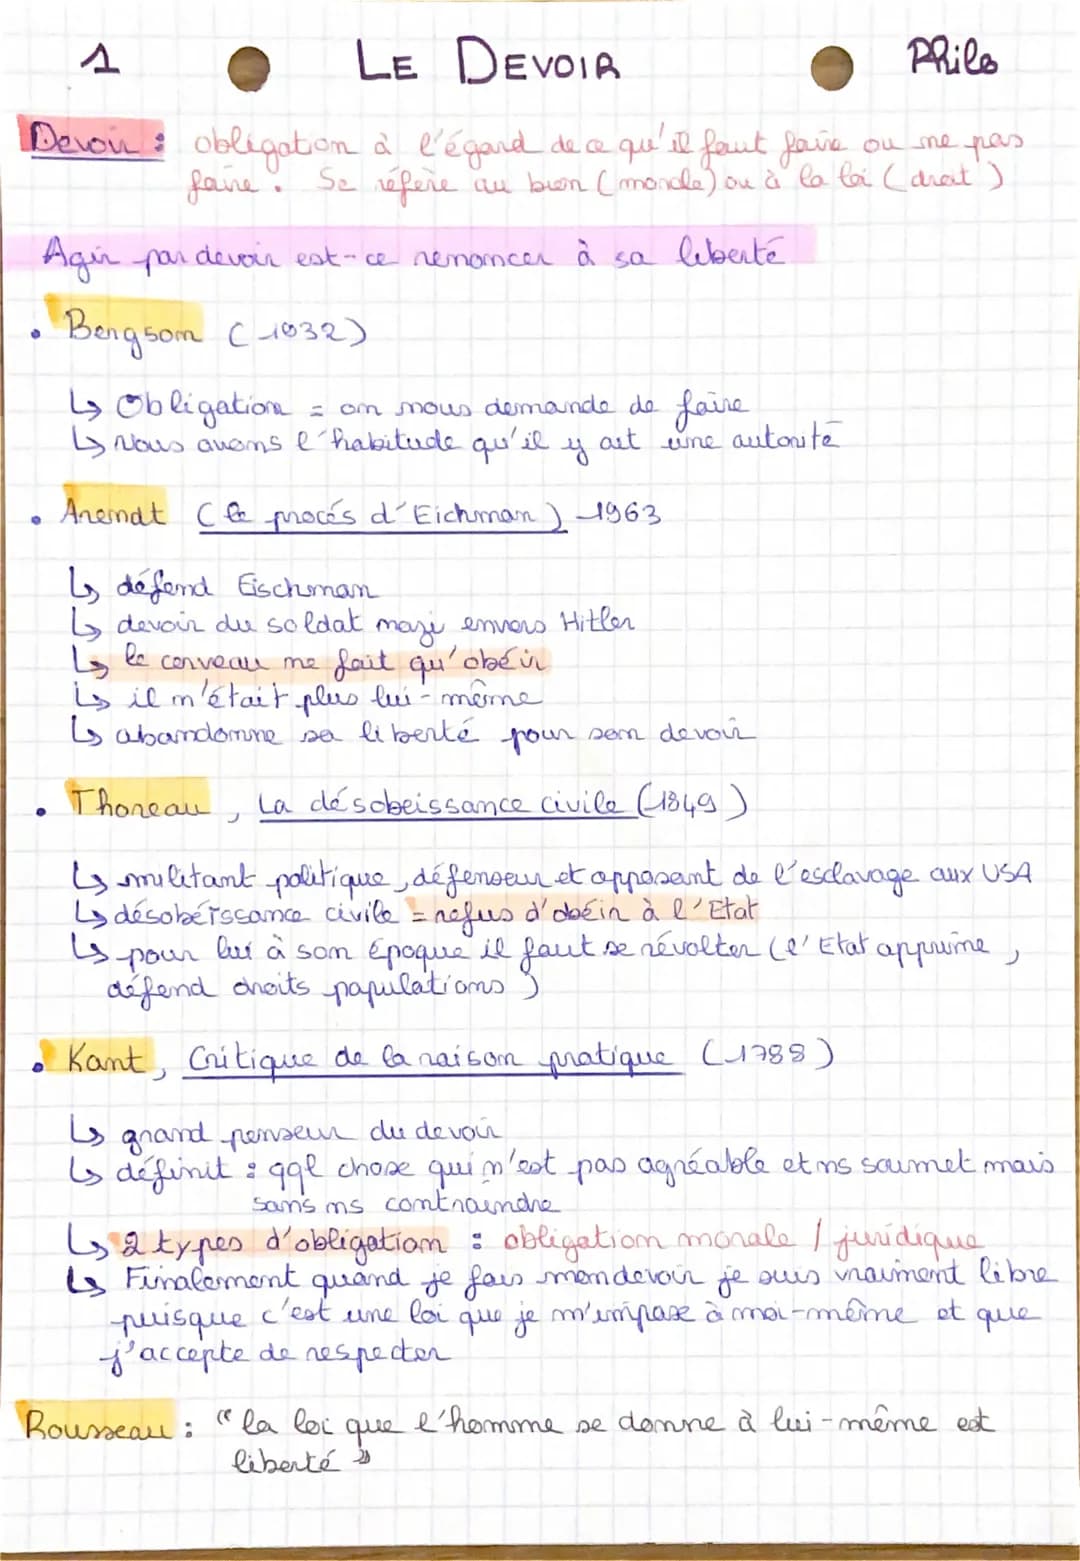 1 LE DEVOIR Philo
Devoir : obligation à l'égard de ce qu'il faut faire ou ne pas
faire. Se réfère au bien (morale) ou à la loi (droit)
Agir par devoir est-ce renoncer à sa liberté
• Bergson (1932)
↳ Obligation = on nous demande de faire
↳ Nous avons l'habitude qu'il y ait une autorité
• Arendt (le procés d'Eichman) 1963
↳ défend Eischman
↳ devoir du soldat nazi envers Hitler
↳ le cerveau ne fait qu'obéir
↳ il n'était plus lui-même
↳ abandonne sa liberté pour son devoir
• Thoreau, La désobeissance civile (1849)
↳ militant politique, défenseur et opposant de l'esclavage aux USA
↳ désobéissance civile = refus d'obéir à l'Etat
↳ pour lui à son époque il faut se révolter (l'Etat opprime,
défend droits populations)
• Kant, Critique de la raison pratique (1788)
↳ grand penseur du devoir
↳ définit : qql chose qui n'est pas agréable et ns soumet mais
sans ns contraindre
↳ 2 types d'obligation : obligation morale / juridique
↳ Finalement quand je fais mon devoir je suis vraiment libre
puisque c'est une loi que je m'impose à moi-même et que
j'accepte de respecter
Rousseau : "la loi que l'homme se donne à lui-même est
liberté"